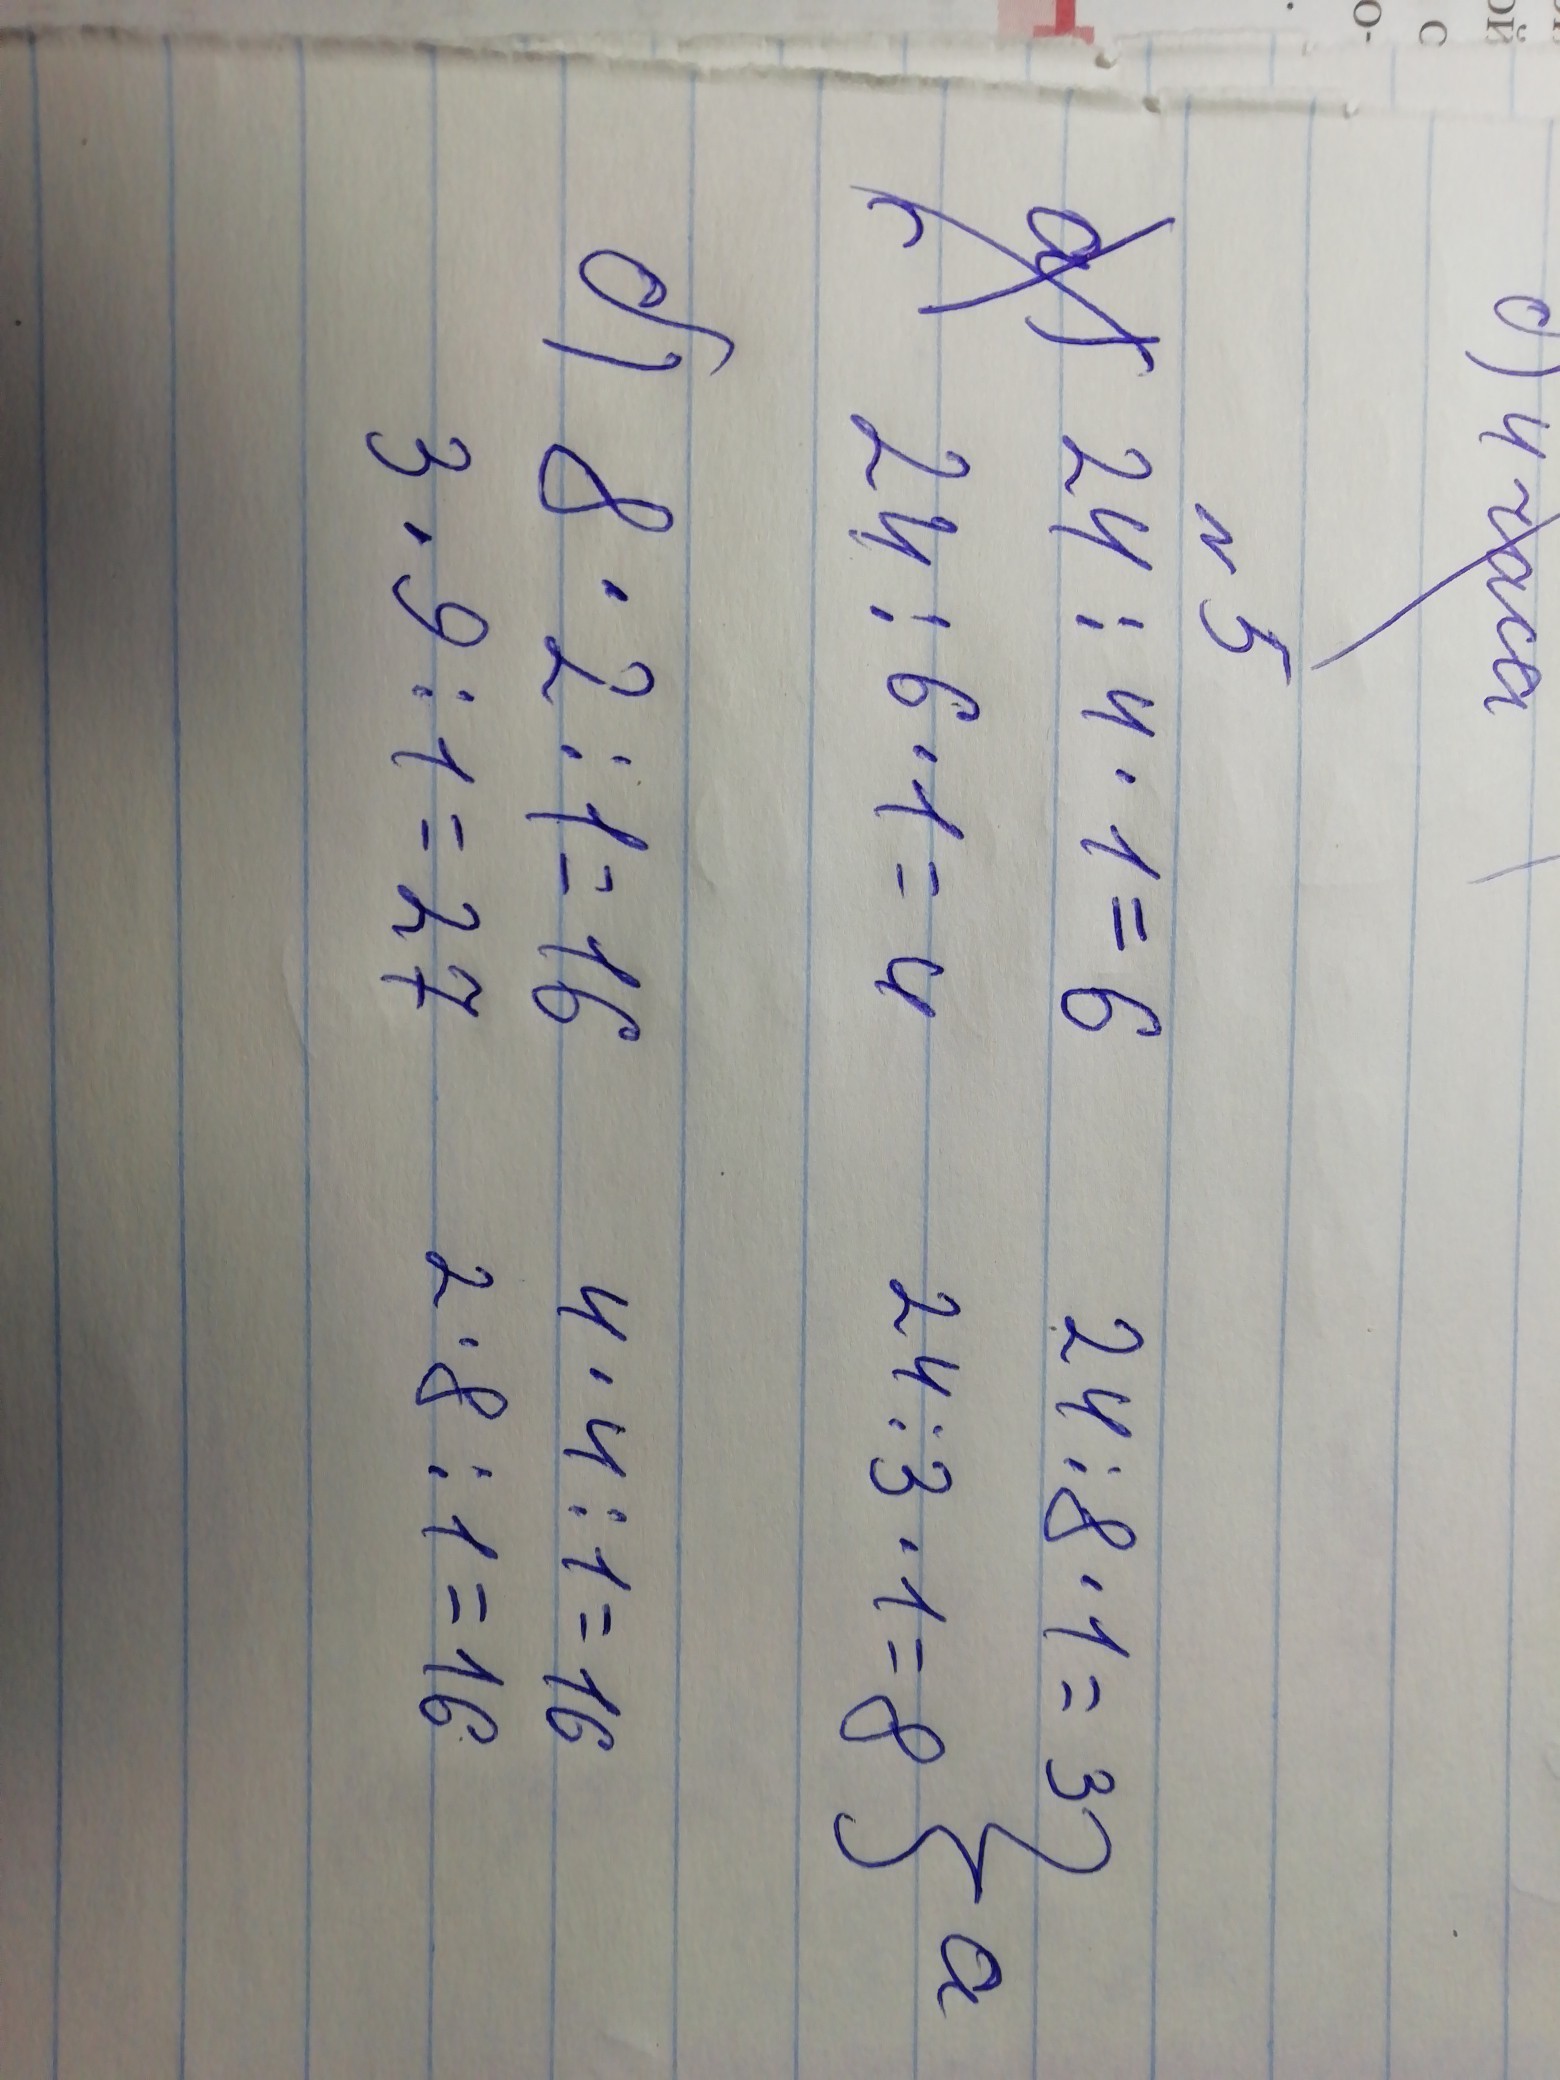 ой
с
о-
1
б) 4 часа
N 5
а) 24 : 4 · 1 = 6 24 : 8 · 1 = 3
24 : 6 · 1 = 4 24 : 3 · 1 = 8 } а
б) 8 · 2 : 1 = 16 4 · 4 : 1 = 16
3 · 9 : 1 = 27 2 · 8 : 1 = 16